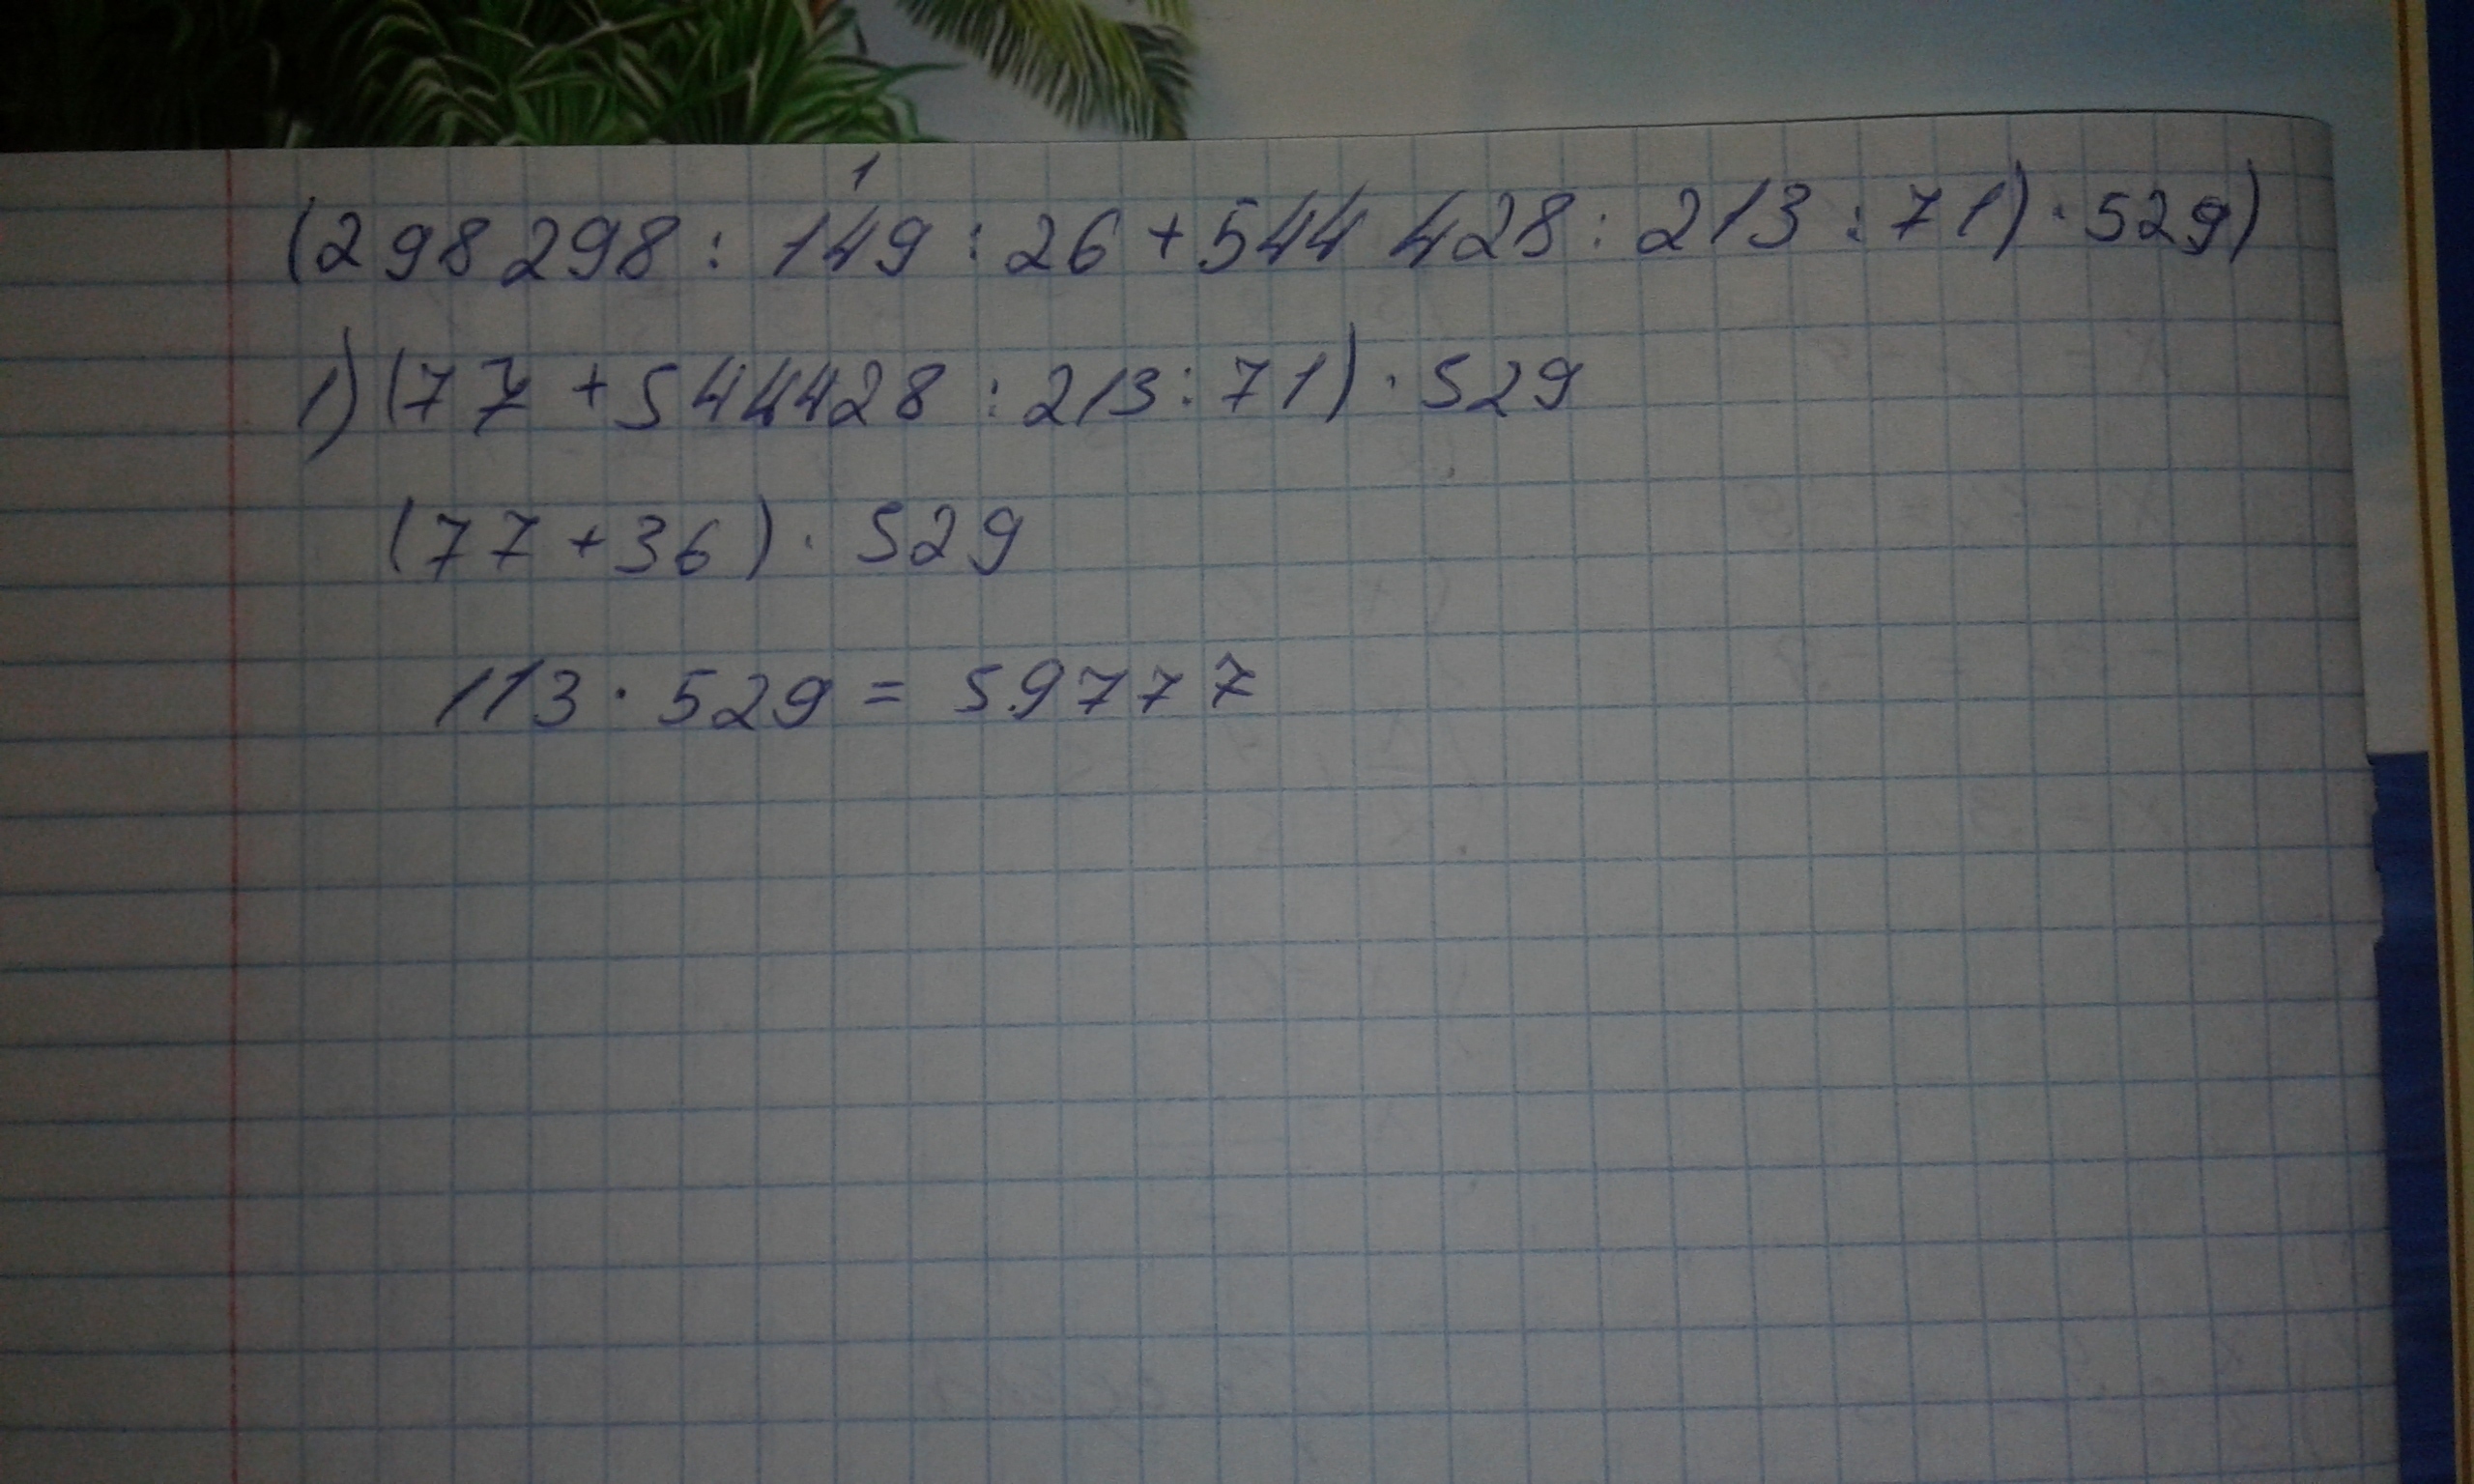 1
(298 298 : 149 : 26 + 544 428 : 213 : 71) · 529)
1) (77 + 544428 : 213 : 71) · 529
(77 + 36) · 529
113 · 529 = 59777